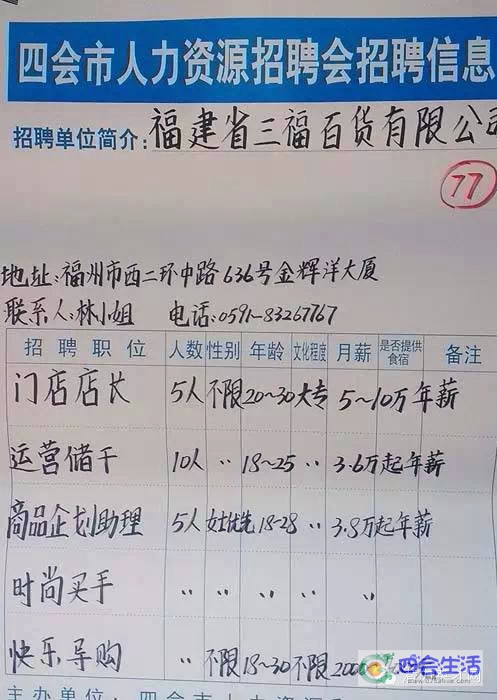 四会市人力资源招聘会招聘信息
招聘单位简介:福建省三福百货有限公司
77
地址:福州市西二环中路636号金辉洋大厦
联系人:林小姐 电话:0591-83267767
招聘职位 人数 性别 年龄 文化程度 月薪 是否提供食宿 备注
门店店长 5人 不限 20~30 大专 5~10万年薪
运营储干 10人 〃 18~25 〃 3.6万起年薪
商品企划助理 5人 女士优先 18-28 〃 3.8万起年薪
时尚买手 〃 〃 〃 〃 〃
快乐导购 〃 不限 18~30 不限
四会生活
主办单位:四会市人力资源